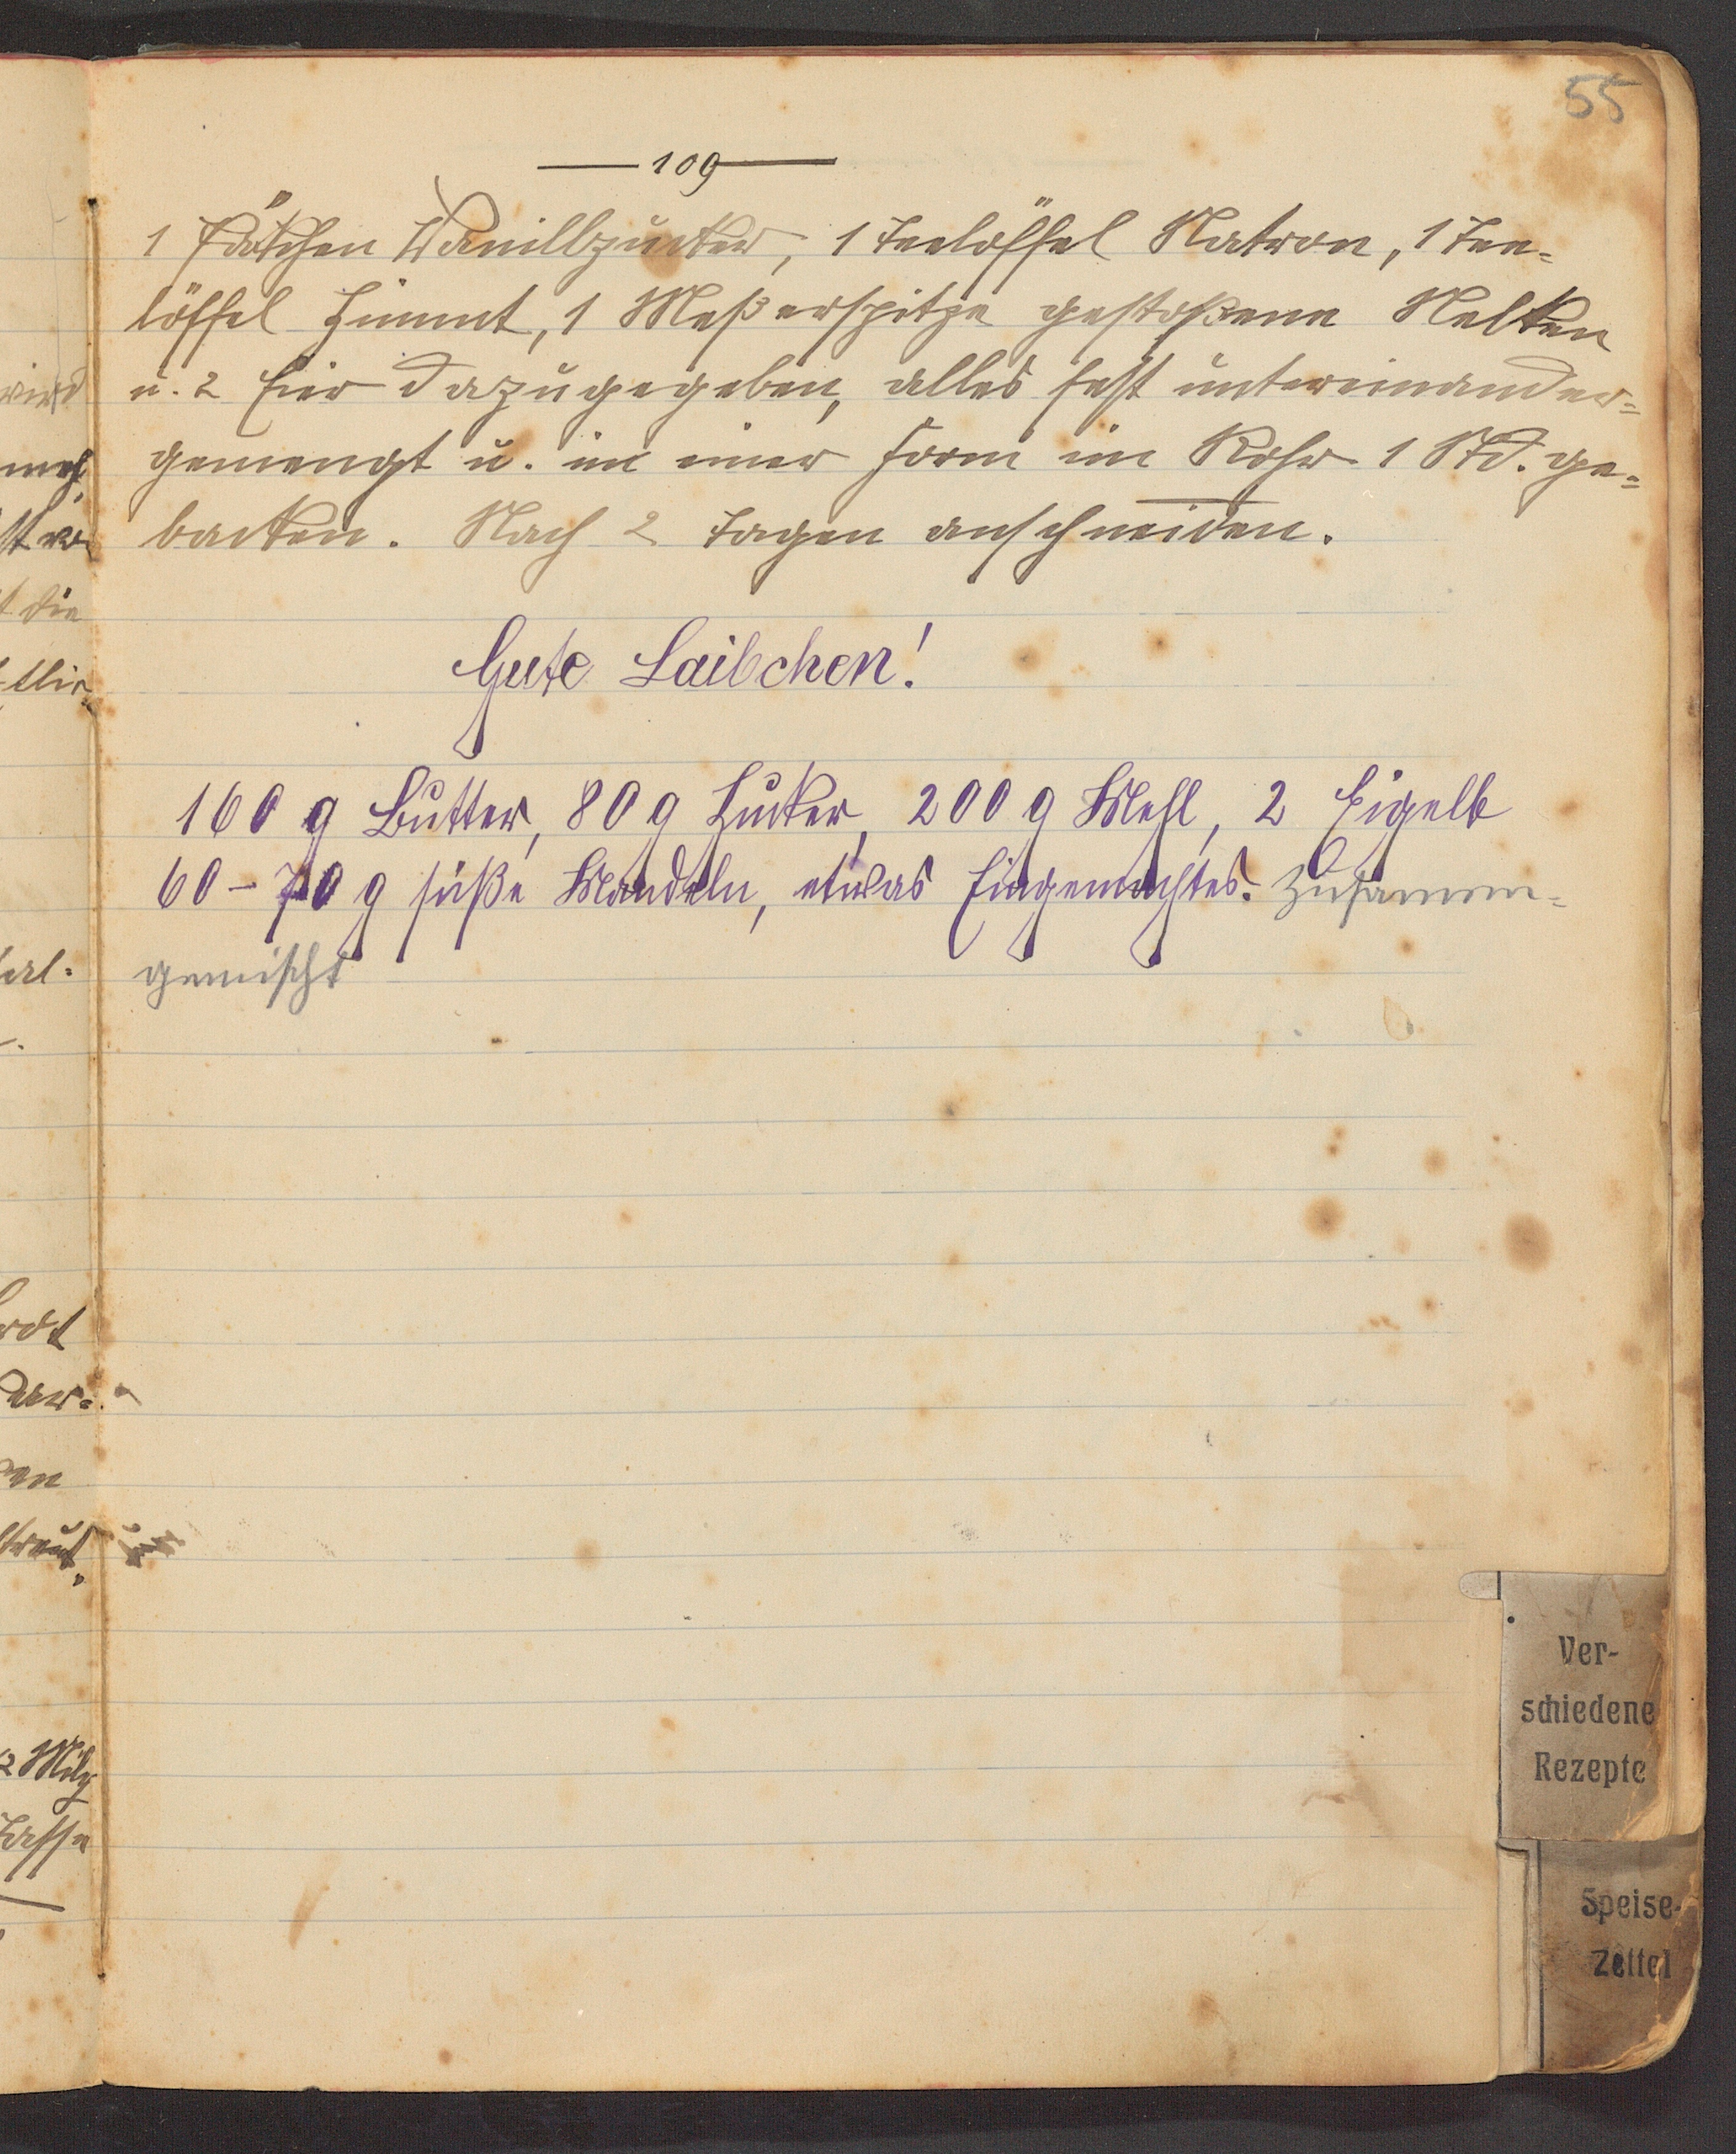 55
109
1 Päckchen Vanillzucker, 1 Teelöffel Natron, 1 Tee-
löffel Zimmt, 1 Meßerspitze gestoßene Nelken
u. 2 Eier dazugegeben, alles fest untereinander-
gemengt u. in einer Form im Rohr 1 Std. ge-
backen. Nach 2 Tagen anschneiden.
Gute Laibchen!
160 g Butter, 80 g Zucker, 200 g Mehl, 2 Eigelb
60-70 g süße Mandeln, etwas Eingemachtes. Zusammen-
gemischt
Ver-
schiedene
Rezepte
Speise-
Zettel
wird
die
2 Milch
Tasse